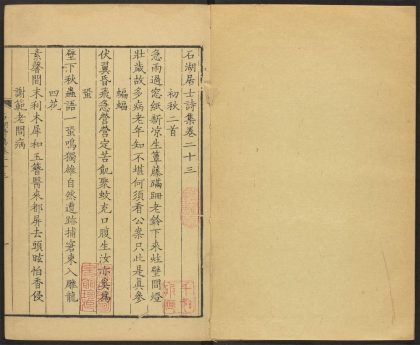 石湖居士詩集卷二十三
初秋二首
急雨過窓紙新凉生簟藤蹣跚老鈴下來蛙壁間燈
壯歲故多病老年知不堪何須看公案只此是眞參
蝙蝠
伏翼昏飛急營營定苦飢聚蚊充口腹生汝亦奚爲
蛩
壁下秋蟲語一蛩鳴獨雄自然遭跡捕窘束入雕籠
四花
素馨間末利木犀和玉簪醫來都屏去頭眩怕香侵
謝範老問病